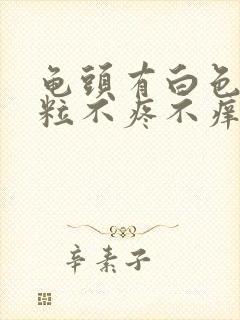 龟頭有白色
粒不疼不痒
辛素子